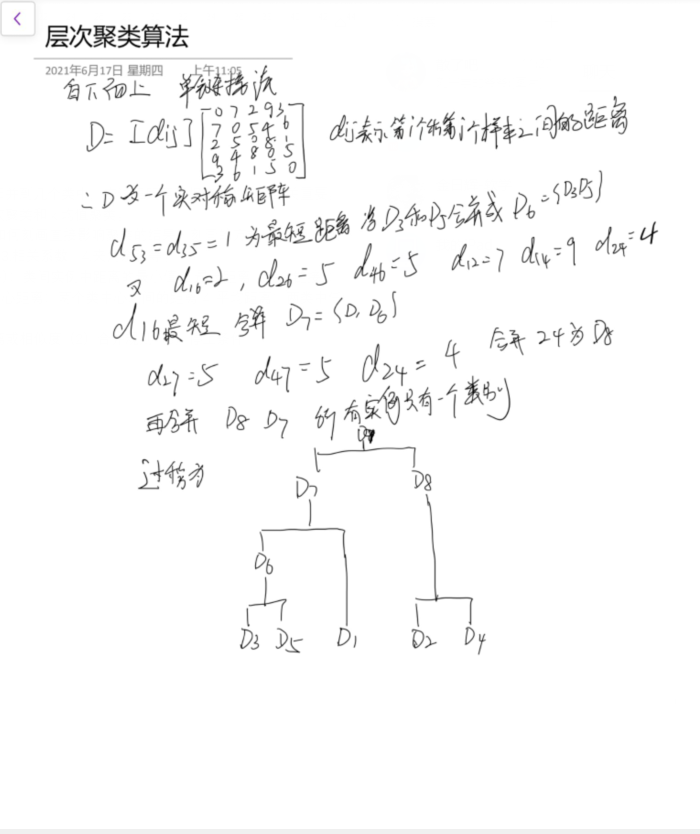 层次聚类算法
2021年6月17日 星期四 上午11:05
自下而上 单链接法
D= [dij] 0 7 2 9 3
7 0 5 4 6
2 5 0 8 1
9 4 8 0 5
3 6 1 5 0
dij表示第i个和第j个样本之间的距离
∴D为一个实对称矩阵
d53=d35=1 为最短距离 将D3和D5合并成 D6={D3D5}
又 d16=2, d26=5 d46=5 d12=7 d14=9 d24=4
d16最短 合并 D7={D1D6}
d27=5 d47=5 d24=4 合并 24为D8
再合并 D8 D7 所有实例只有一个类别
过程为
D7 D8
D6
D3 D5 D1 D2 D4